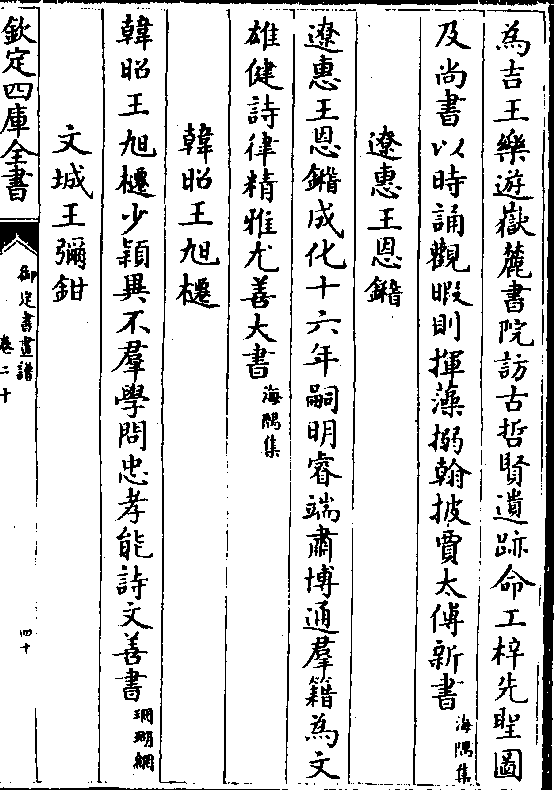 為吉王樂遊嶽麓書院訪古哲賢遺跡命工梓先聖圖
及尚書以時誦觀暇則揮藻搦翰披賈太傅新書海隅集
遼惠王恩鑙
遼惠王恩鑙成化十六年嗣明睿端肅博通羣籍為文
雄健詩律精雅尤善大書海隅集
韓昭王旭櫏
韓昭王旭櫏少穎異不羣學問忠孝能詩文善書珊瑚網
文城王彌鉗
欽定四庫全書
御定書畫譜
卷二十
四十